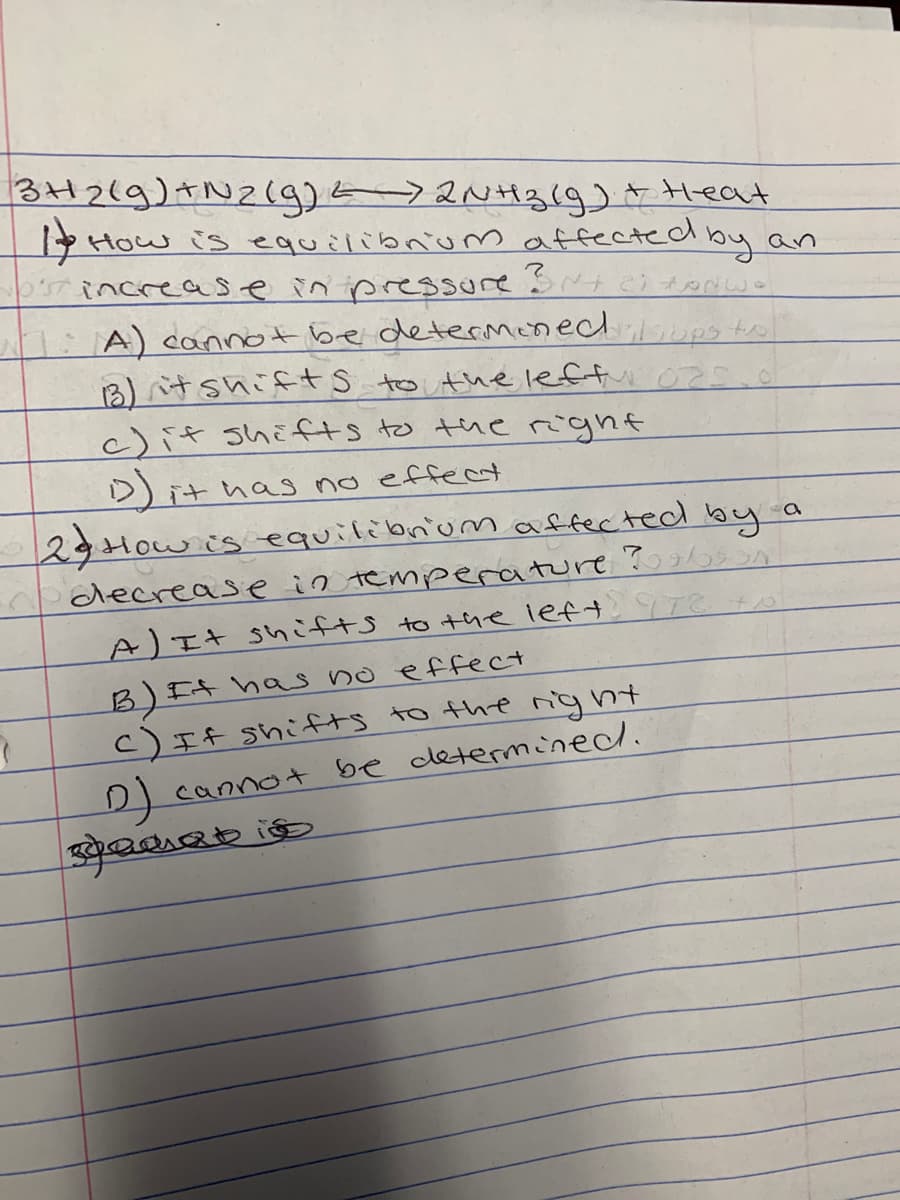 3H2(g)+N2(g) ⟷ 2NH3(g) + Heat
1) How is equilibrium affected by an
increase in pressure?
A) cannot be determined
B) it shifts to the left
C) it shifts to the right
D) it has no effect
2) How is equilibrium affected by a
decrease in temperature?
A) It shifts to the left
B) It has no effect
C) It shifts to the right
D) cannot be determined.